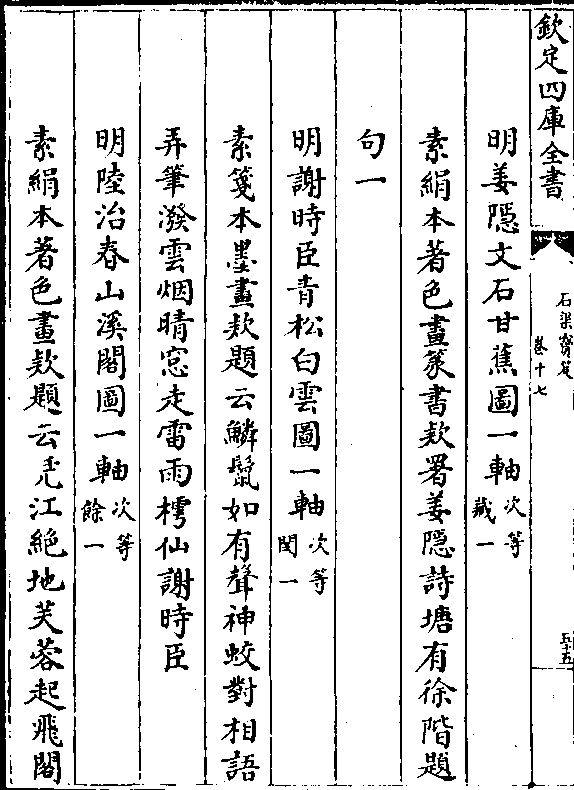 欽定四庫全書
石渠寳笈
卷十七
五十五
明姜隠文石甘蕉圖一軸次等藏一
素絹本著色畫篆書欵署姜隠詩塘有徐階題
句一
明謝時臣青松白雲圖一軸次等閏一
素箋本墨畫欵題云鱗鬛如有聲神蛟對相語
弄筆潑雲烟晴窓走雷雨樗仙謝時臣
明陸治春山溪閣圖一軸次等餘一
素絹本著色畫欵題云江絶地芙蓉起飛閣